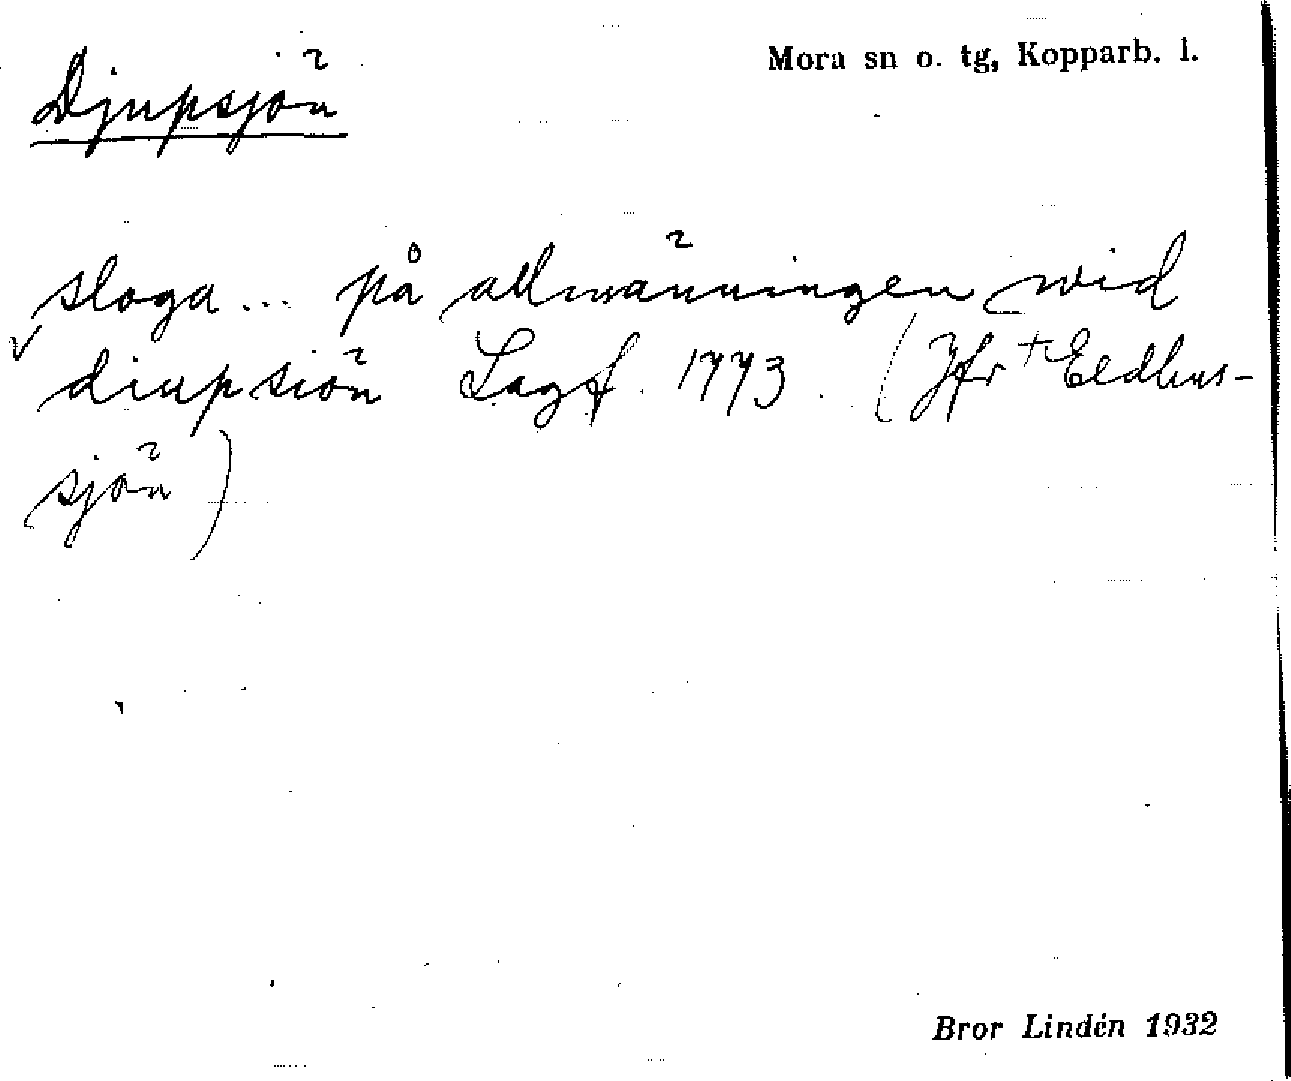 Djupsjön
Mora sn o. tg, Kopparb. l.
sloga... på allmänningen wid
diupsiön Lagf. 1773. (Jfr +Eldhus-
sjön)
Bror Lindén 1932